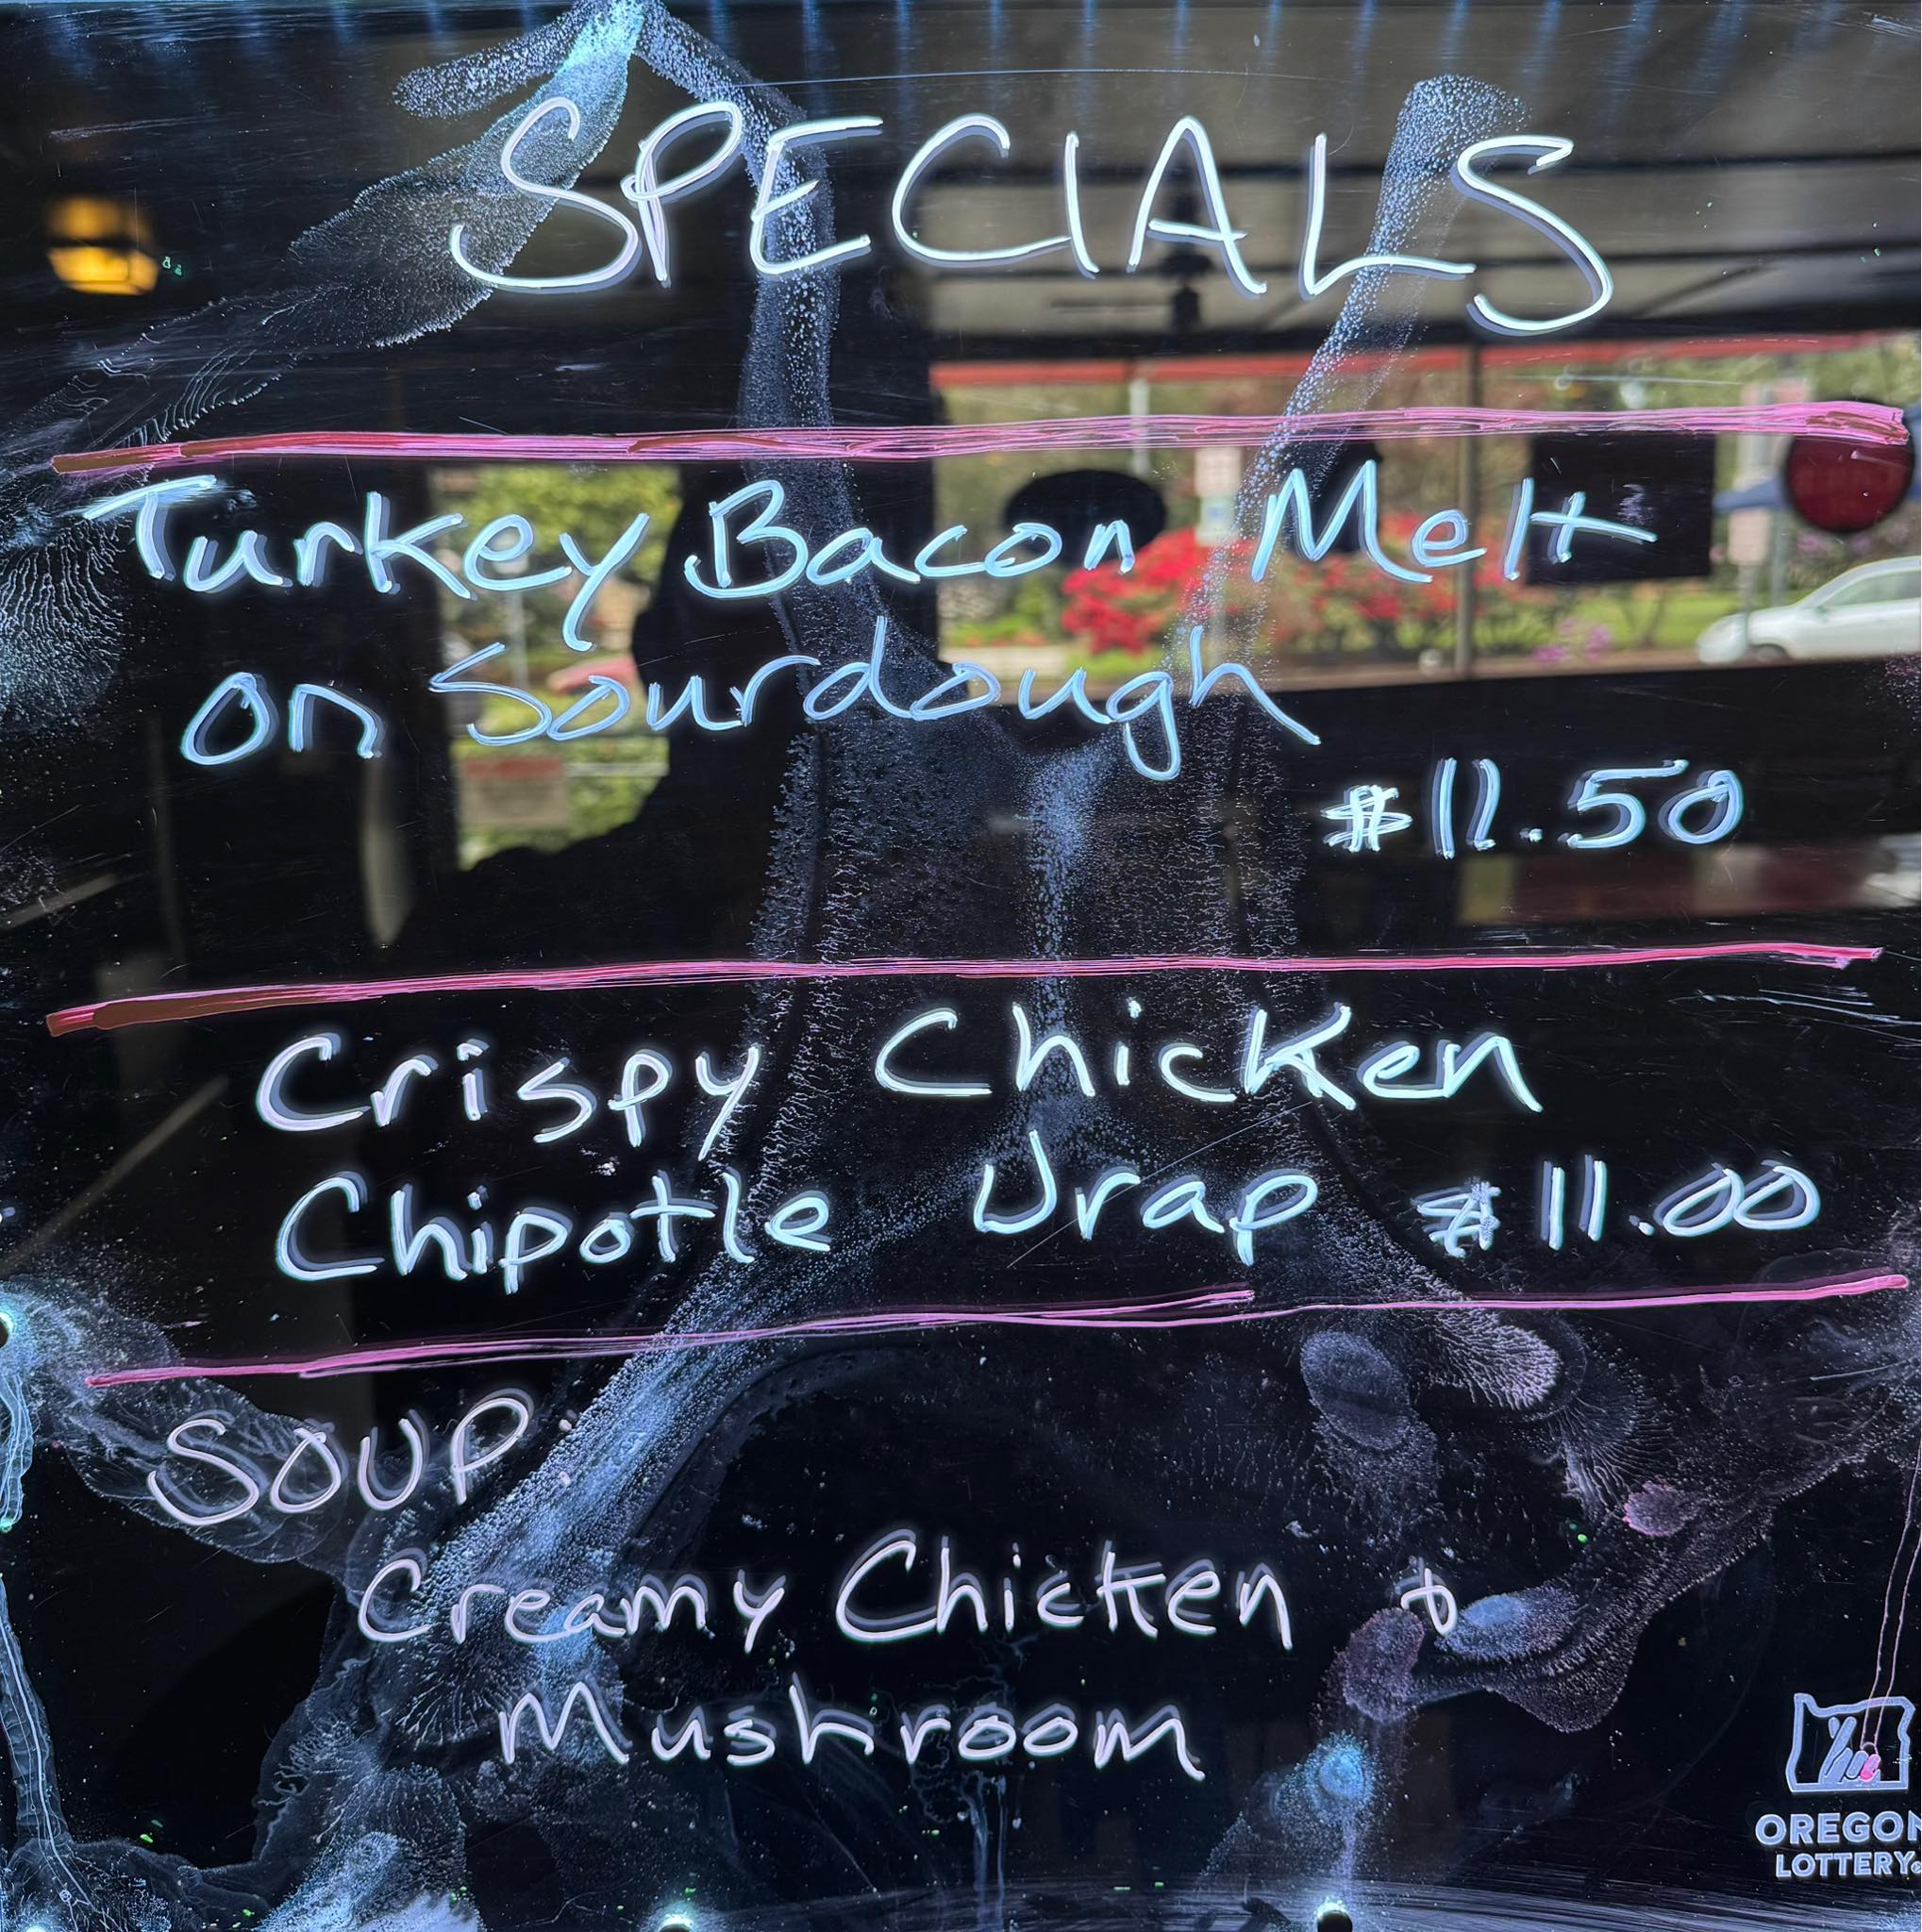 SPECIALS
Turkey Bacon Melt
on Sourdough
$11.50
Crispy Chicken
Chipotle Wrap $11.00
SOUP:
Creamy Chicken &
Mushroom
OREGON
LOTTERY